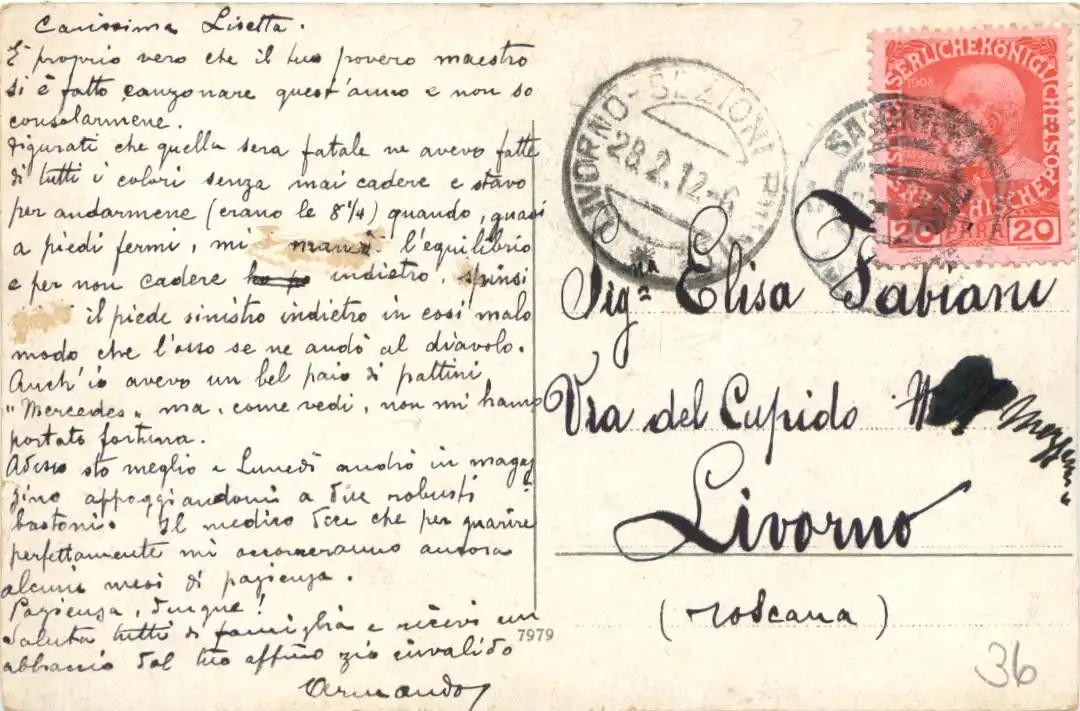 Carissima Lisetta.
È proprio vero che il tuo povero maestro
si è fatto canzonare quest'anno e non so
consolarmene.
Figurati che quella sera fatale ne avevo fatte
di tutti i colori senza mai cadere e stavo
per andarmene (erano le 8 1/4) quando, quasi
a piedi fermi, mi mancò l'equilibrio
e per non cadere indietro, spinsi
il piede sinistro indietro in così malo
modo che l'osso se ne andò al diavolo.
Anch'io avevo un bel paio di pattini
"Mercedes" ma, come vedi, non mi hanno
portato fortuna.
Adesso sto meglio e Lunedì andrò in magaz
zino appoggiandomi a due robusti
bastoni. Il medico dice che per guarire
perfettamente mi occorreranno ancora
alcuni mesi di pazienza.
Pazienza, dunque!
Saluta tutti di famiglia e ricevi un
abbraccio dal tuo affmo zio invalido
Armando
7979
LIVORNO-SEZIONI RI
28.2.12-6
SERLICHEKÖNIGLICHE
1908
20 PARA 20
Signa Elisa Fabiani
Via del Cupido
Livorno
(Toscana)
36